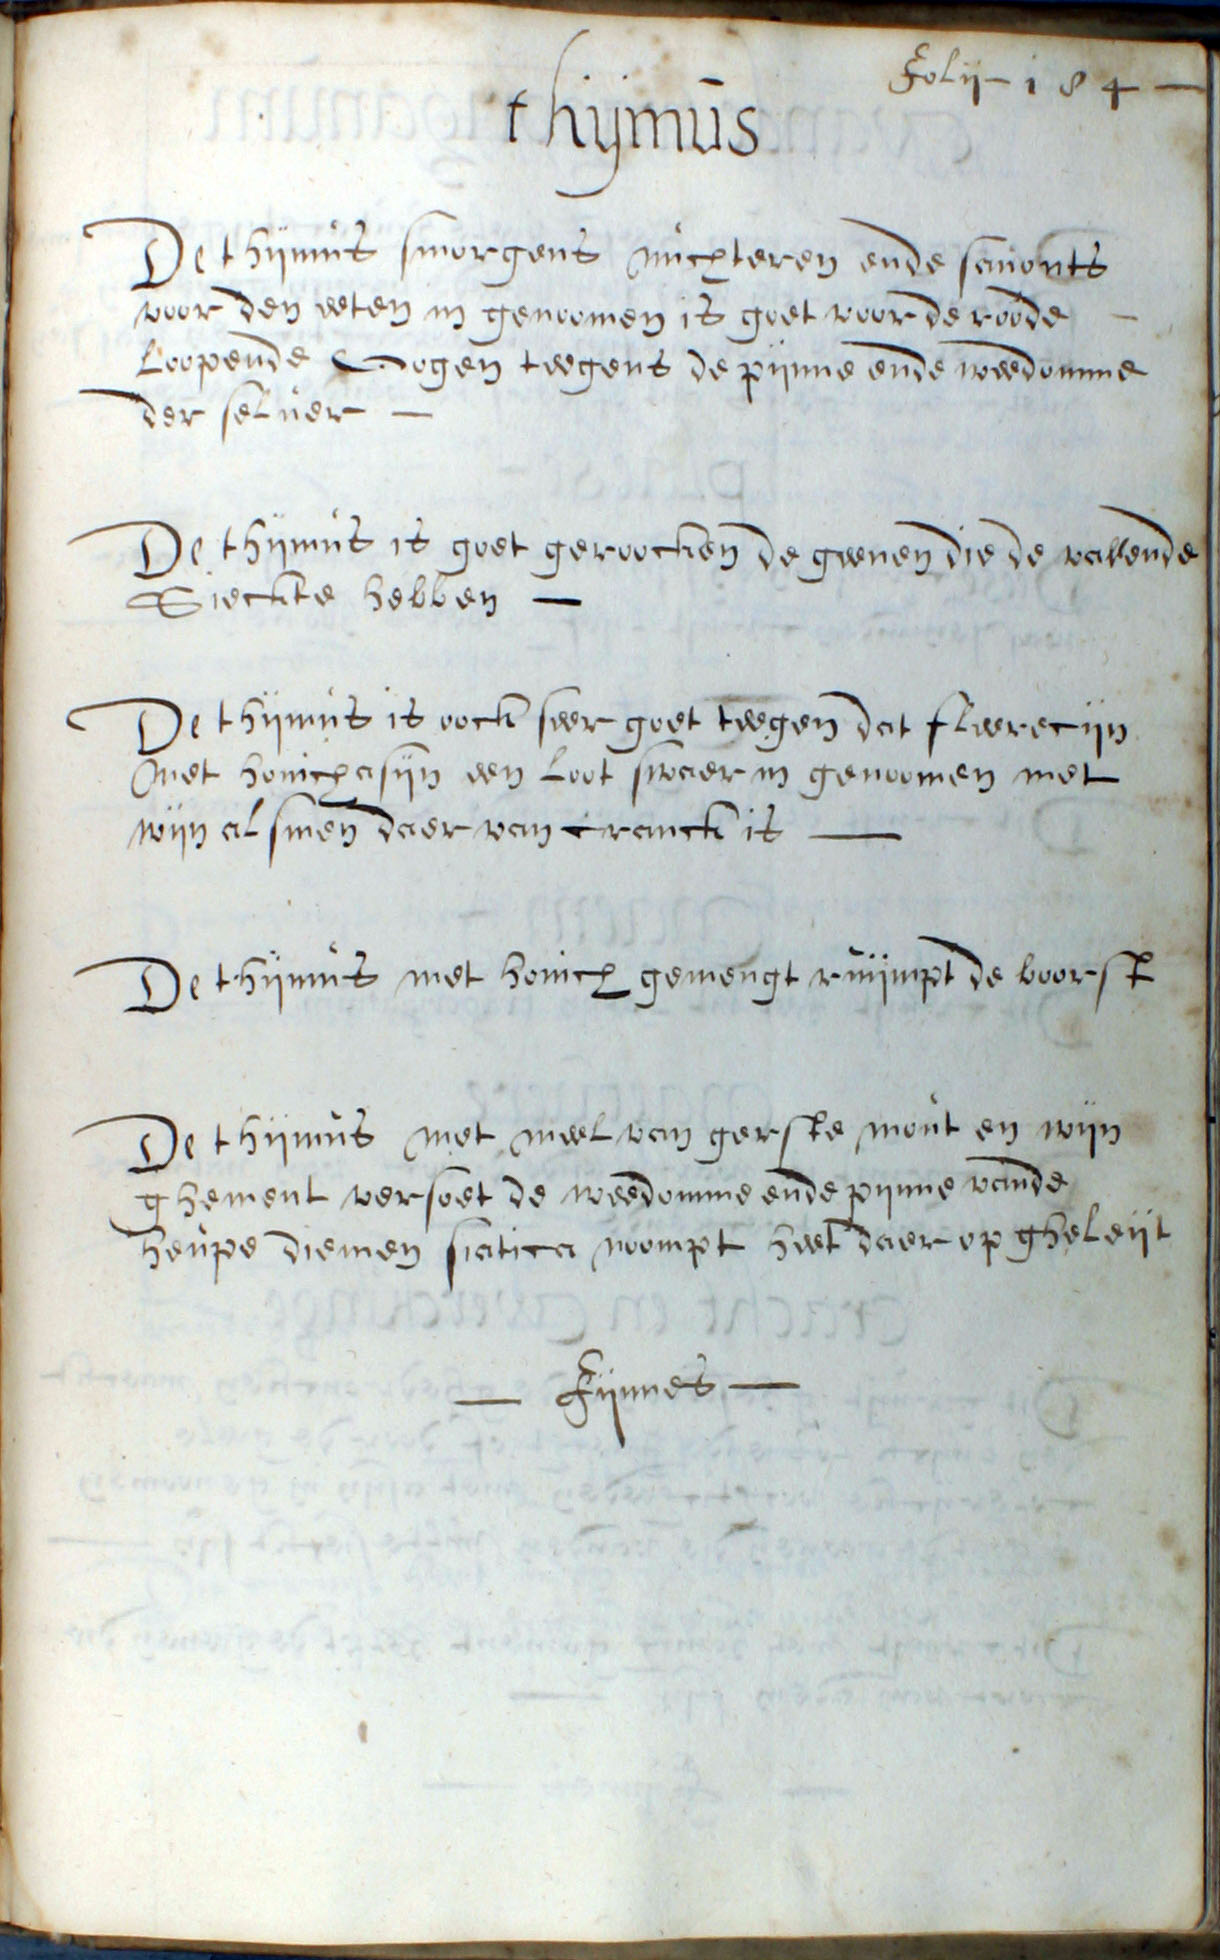 Folij - 184 -
thijmus
De thijmus smorgens nuchteren ende sauonts
voor den eeten in genoomen is goet voor de roode -
loopende Oogen teegens de pijnne ende weedomme
der seluer -
De thijmus is goet geroocken de geenen die de vallende
Sieckte hebben -
De thijmus is oock seer goet teegen dat fleerecijn
Met honich asijn een loot swaer in genoomen met
wijn alsmen daer van cranck is -
De thijmus met honich gemengt ruijmpt de boorst
De thijmus met meel van gerste mout en wijn
ghement versoet de weedomme ende pijnne vande
heupe diemen siatica noompt heet daer op gheleijt
- Fijnnes -